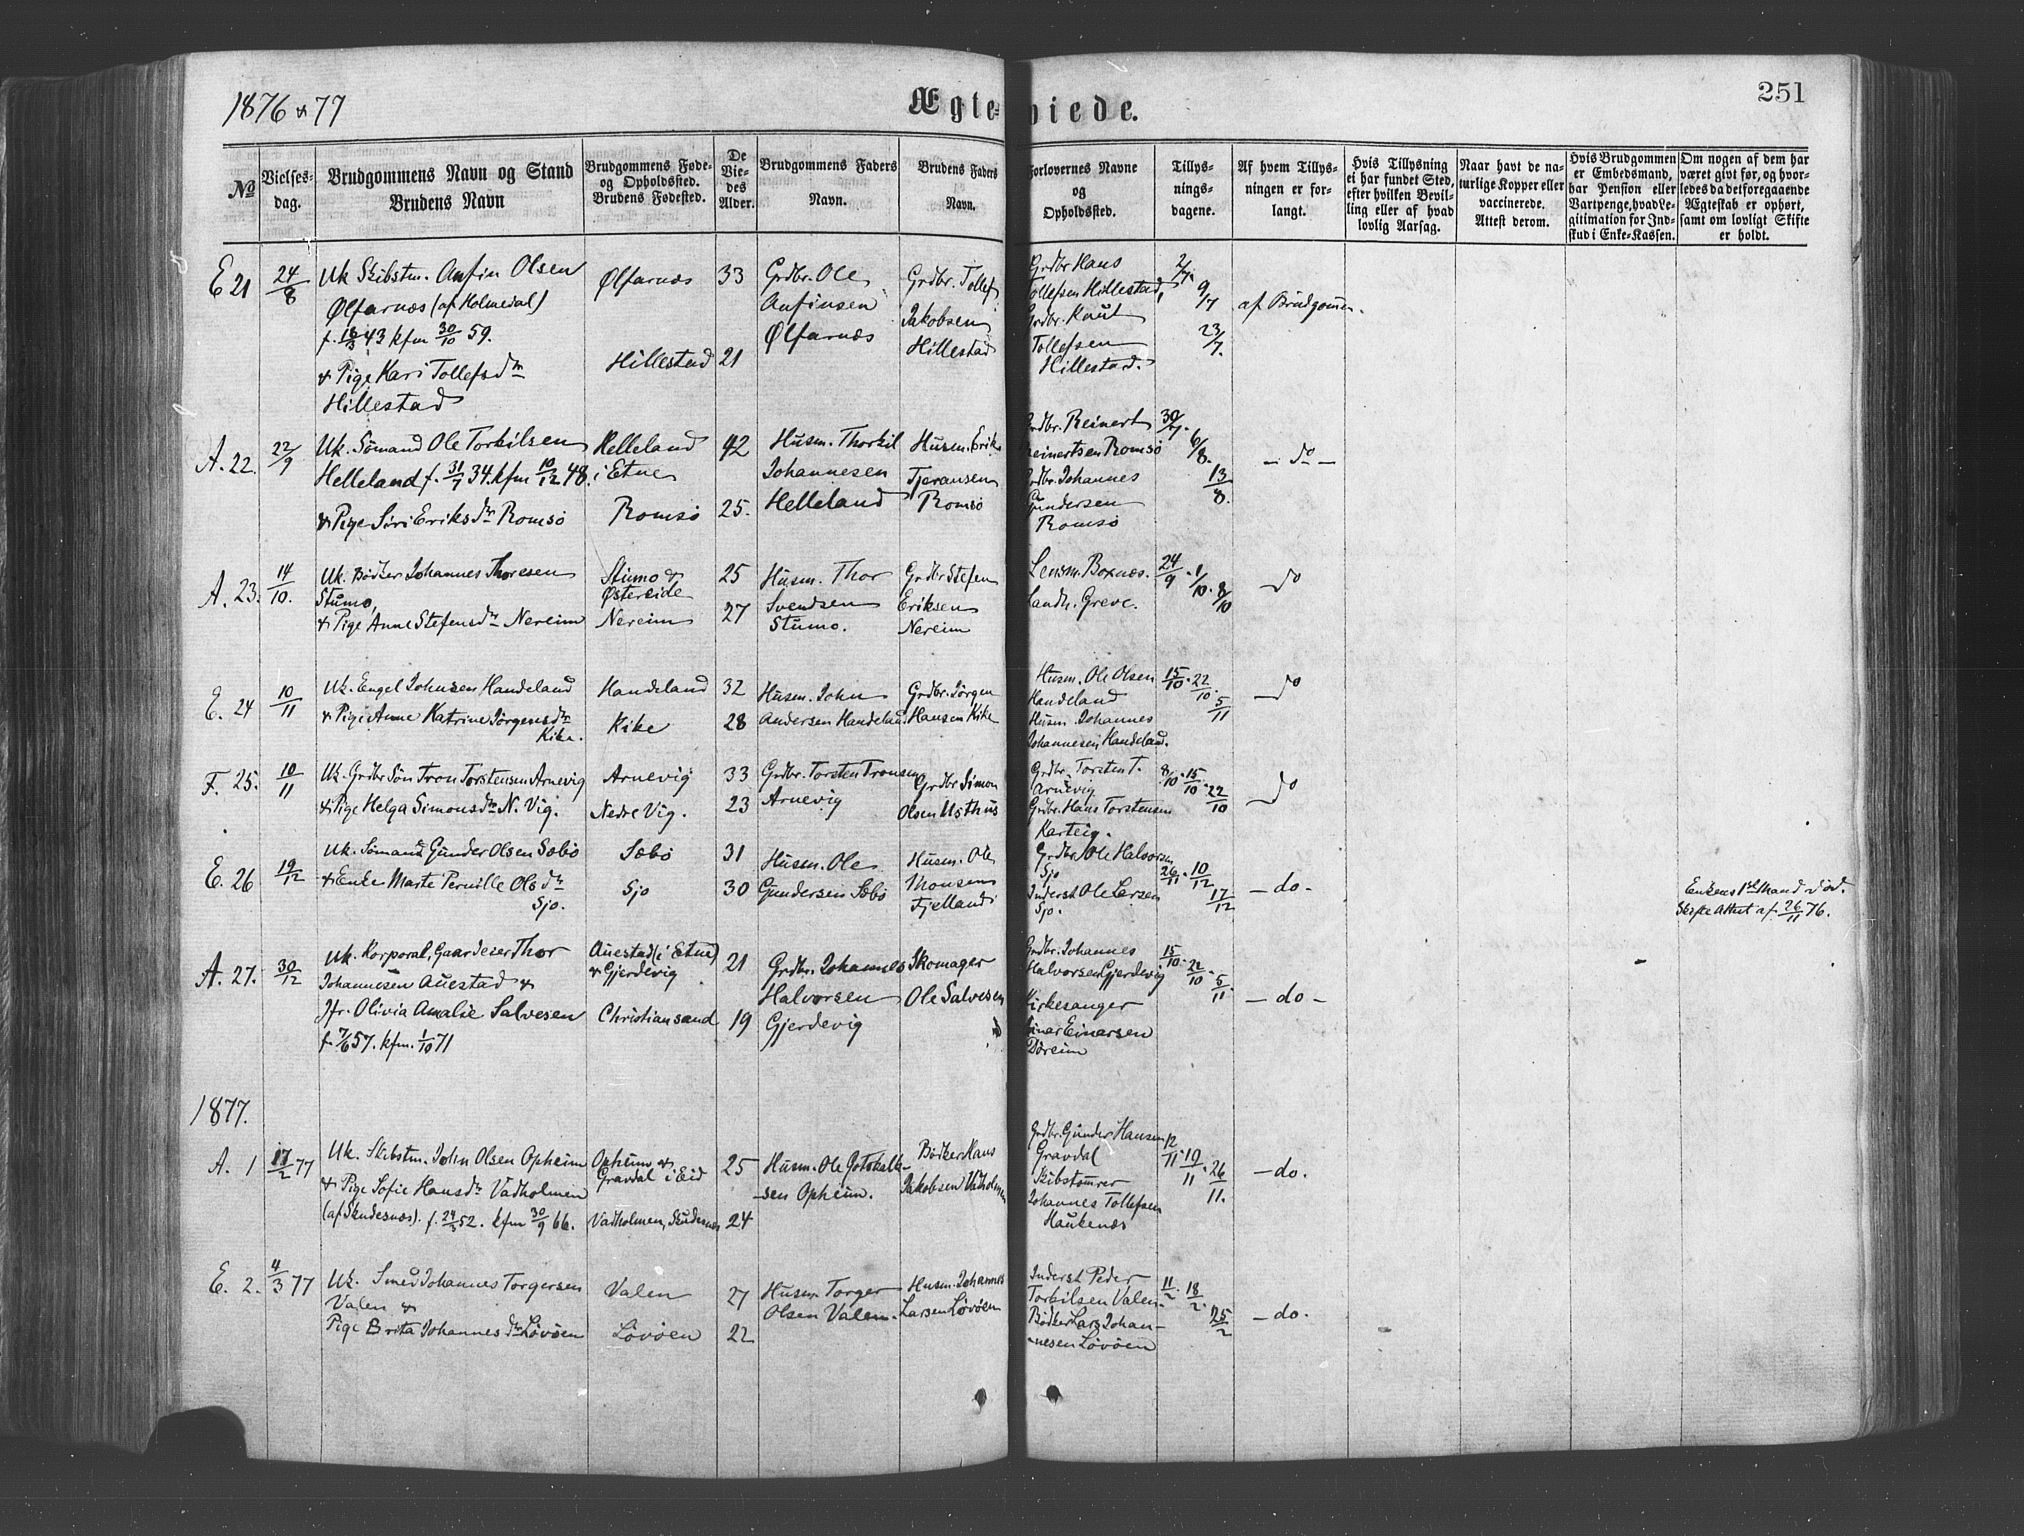 1876 & 77
Ægte-
viede.
251
No
Vielses-
dag.
Brudgommens Navn og Stand
Brudens Navn
Brudgommens Føde-
og Opholdssted.
Brudens Fødested.
De
Vie-
des
Alder.
Brudgommens Faders
Navn.
Brudens Faders
Navn.
Forlovernes Navne
og
Opholdssted.
Tillys-
nings-
dagene.
Af hvem Tillys-
ningen er for-
langt.
Hvis Tillysning
ei har fundet Sted,
efter hvilken Bevil-
ling eller af hvad
lovlig Aarsag.
Naar havt de na-
turlige Kopper eller
vaccinerede.
Attest derom.
Hvis Brudgommen
er Embedsmand,
har Pension eller
Vartpenge, hvad Le-
gitimation for Ind-
skud i Enke-Kassen.
Om nogen af dem har
været givt før, og hvor-
ledes da det foregaaende
Ægteskab er ophørt,
samt om lovligt Skifte
er holdt.
E 21
24/8
Uk Skibstm. Anfin Olsen
Ølfarnæs (af Holmedal)
f. 18/3 43 kfm 30/10 59.
& Pige Kari Tollefsdtr
Hillestad
Ølfarnæs
Hillestad
33
21
Grdbr. Ole
Anfinsen
Ølfarnæs
Grdbr. Tollef
Jakobsen
Hillestad
Grdbr Hans
Tollefsen Hillestad,
Grdbr. Knut
Tollefsen
Hillestad.
2/7.
9/7
23/7.
af Brudgommen.
A. 22.
22/9
Uk. Sömand Ole Torkilsen
Helleland f. 31/7 34. kfm 10/12 48.
& Pige Siri Eriksdtr Romsö
Helleland
i Etne
Romsö
42
25.
Husm. Thorkil
Johannesen
Helleland
Husm. Erik
Tjeransen
Romsö
Grdbr. Reinert
Reinertsen Romsö
Grdbr. Johannes
Gundersen
Romsö
30/7.
6/8.
13/8.
– do –
A. 23.
14/10.
Uk. Bödker Johannes Thoresen
Stumo,
& Pige Anne Stefensdtr Nereim
Stumo &
Østereide
Nereim
25
27
Husm. Thor
Svendsen
Stumo.
Grdbr Stefen
Eriksen
Nereim
Lensm. Boxnæs.
Landh. Greve.
24/9 . 1/10 . 8/10
do
E. 24
10/11
Uk. Engel Johnsen Handeland
& Pige Anne Katrine Jörgensdtr
Kike.
Handeland
Kike
32
28
Husm. John
Andersen Handeland
Grdbr. Jörgen
Hansen Kike
Husm. Ole Olsen
Handeland
Husm. Johannes
Johannesen Handeland.
15/10 . 22/10 . 5/11
do
F. 25.
10/11
Uk. Grdbr Sön Tron Torstensen Arnevig
& Pige Helga Simonsdtr N. Vig.
Arnevig
Nedre Vig.
33
23
Grdbr. Torsten Tronsen
Arnevig
Grdbr Simon
Olsen Usthus
Grdbr. Torsten T.
Arnevig
Grdbr. Hans Torstensen
Karteig.
8/10 . 15/10 . 22/10
do
E. 26
19/12
Uk. Sömand Gunder Olsen Sæbö
& Enke Marte Pernille Olsdtr
Sjo.
Sæbö
Sjo
31
30
Husm. Ole
Gundersen Sæbö
Husm. Ole
Monsen
Fjelland
Grdbr. Ole Halvorsen
Sjo
Inderst Ole Larsen
Sjo.
26/11 . 10/12
17/12
– do.
Enkens 1ste Mand död.
Skifte Attest af 26/11 76.
A. 27.
30/12
Uk. Korporal, Gaardeier Thor
Johannesen Auestad &
Jfr. Olivia Amalie Salvesen
f. 7/6 57. kfm. 1/10 71
Auestad (i Etne)
& Gjerdevig
Christiansand
21
19
Grdbr. Johannes
Halvorsen
Gjerdevig
Skomager
Ole Salvesen
Grdbr. Johannes
Halvorsen Gjerdevig
Kirkesanger
Einar Einersen
15/10 . 22/10 . 5/11.
– do –
1877.
A. 1
17/2 77
Uk. Skibstm. John Olsen Opheim
& Pige Sofie Hansdtr Vadholmen
(af Skudesnæs). f. 24/3 52. kfm 30/9 66.
Opheim &
Gravdal i Eid
Vadholmen, Skudesnæs
25
24
Husm. Ole Gotskalk-
-sen Opheim.
Bödker Hans
Jakobsen Vadholmen
Grdbr. Gunder Hansen
Gravdal
Skibstömrer
Johannes Tollefsen
Haukenæs
12/11 . 19/11 . 26/11.
– do.
E. 2.
4/3 77
Uk. Smed Johannes Torgersen
Valen &
Pige Brita Johannesdtr Lövöen
Valen
Lövöen
27
22
Husm. Torger
Olsen Valen.
Husm. Johannes
Larsen Lövöen
Inderst Peder
Torkilsen Valen.
Bödker Lars Johan-
-nesen Lövöen
11/2 . 18/2 .
25/2
– do.